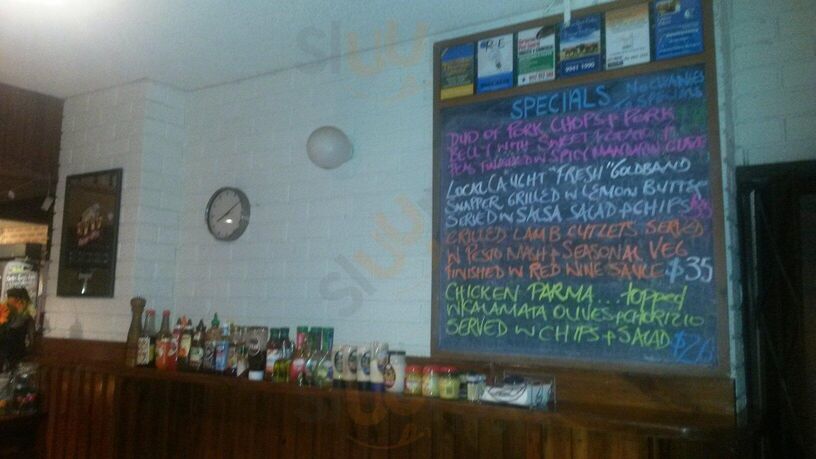 SPECIALS NO CHANGES
TO SPECIALS
DUO OF PORK CHOPS & PORK
BELLY WITH SWEET POTATO
PEAS FINISHED W SPICY MANDARIN GLAZE
LOCAL CAUGHT "FRESH" GOLDBAND
SNAPPER GRILLED W LEMON BUTTER
SERVED W SALSA SALAD & CHIPS
GRILLED LAMB CUTLETS SERVED
W PESTO MASH & SEASONAL VEG
FINISHED W RED WINE SAUCE $35
CHICKEN PARMA... topped
W KALAMATA OLIVES & CHORIZIO
SERVED W CHIPS & SALAD $26
sluurpy
sluurpy